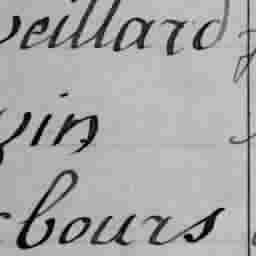 veillard
vin
bours